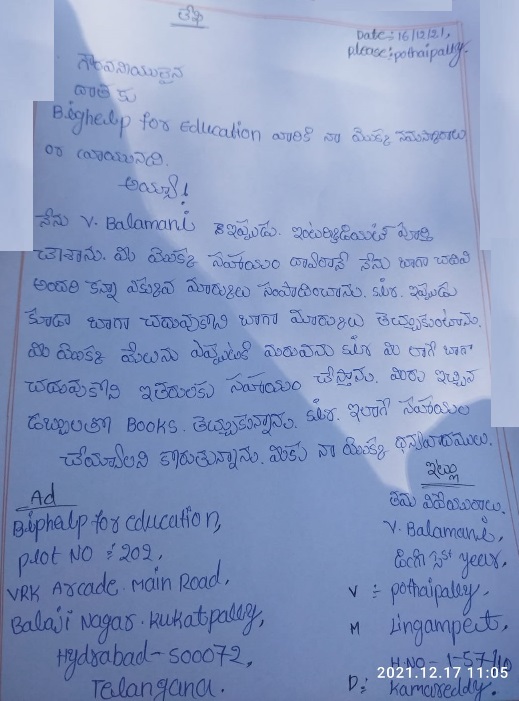 లేఖ
Date: 16/12/21,
please: pothaipally.
గౌరవనియులైన
దాత కు
Bighelp for Education వారికి నా యొక్క నమస్కారాలు
or వ్రాయునది.
అయ్యా!
నేను V. Balamani ఇప్పుడు. ఇంటర్మీడియేట్ పూర్తి
చేశాను. మీ యొక్క సహాయం దావారానే నేను బాగా చదివి
అందరి కన్నా ఎక్కువ మార్కులు సంపాదించాను. సర్. ఇప్పుడు
కూడా బాగా చదువుకొని బాగా మార్కులు తెచ్చుకుంటాను.
మీ యొక్క మేలును ఎప్పుటికి మరువను సర్ మీ లాగే బాగా
చదువుకొని ఇతరులకు సహాయం చేస్తాను. మీరు ఇచ్చిన
డబ్బులతో BOOKS. తెచ్చుకున్నాను. సర్. ఇలాగే సహాయం
చేయాలని కోరుతున్నాను. మీకు నా యొక్క ధన్యవాదములు.
ఇట్లు
తమ విదేయురాలు.
V. Balamani,
డిగ్రీ 1st year,
V : pothaipally,
M Lingampeet,
H.NO - 1-57/10
D: Kamareddy.
Ad
Bighelp for education,
plot NO : 202,
VRK Arcade. Main Road,
Balaji Nagar. Kukatpally,
Hydrabad-500072,
Telangana.
2021.12.17 11:05